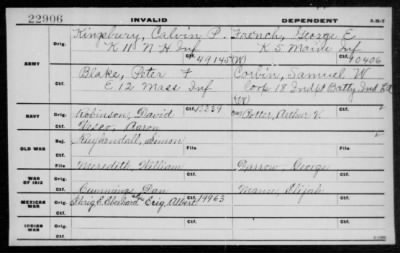 22906 INVALID DEPENDENT 3-217
ARMY
Orig. Kingsbury, Calvin P. French, George E.
K 11 N H Inf K 5 Maine Inf
Ctf. 49145 (W) 90406
Blake, Peter F Corbin, Samuel W
E 12 Mass Inf 18 Indpt Batty Ind L A
NAVY
Orig. Robinson, David 12239 Potter, Arthur V.
Ctf. Vesco, Aaron
OLD WAR
Rej. Kuykendall, Simon
File Meredith, William File Darrow, George
WAR OF 1812
Orig.
Ctf. Cummings, Dan Mann, Elijah
MEXICAN WAR
Orig. Erig, Albert 19963
Ctf. Ctf.
INDIAN WAR
Orig.
Ctf. Ctf.